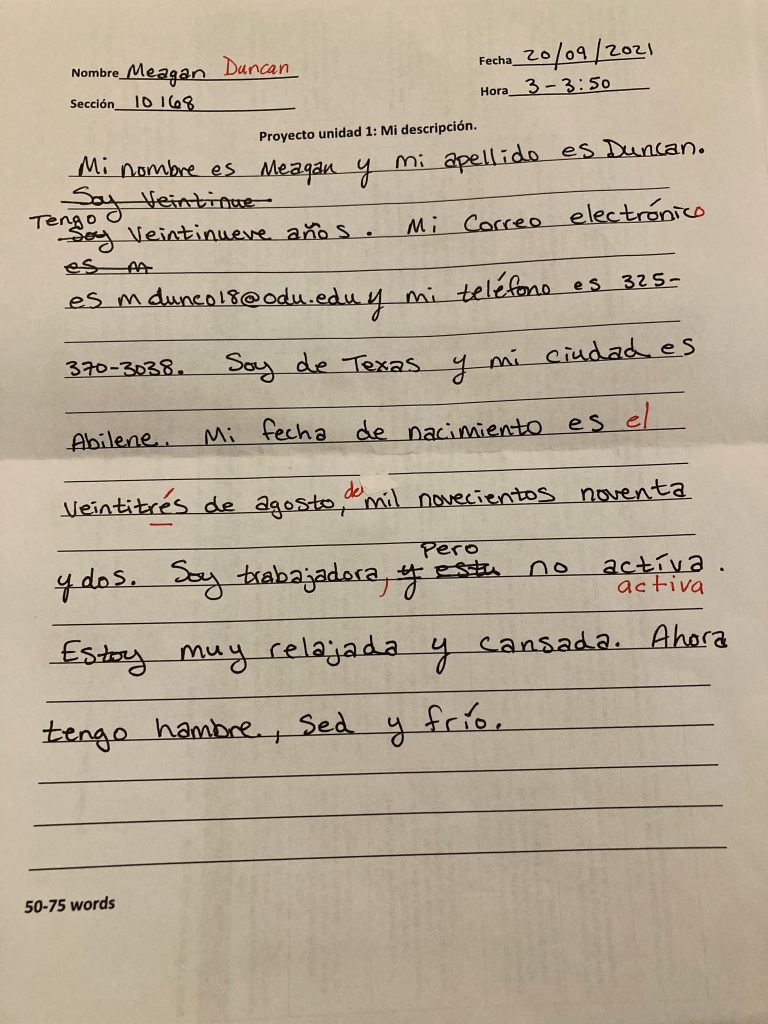 Nombre Meagan Duncan
Fecha 20/09/2021
Sección 10168
Hora 3-3:50
Proyecto unidad 1: Mi descripción.
Mi nombre es Meagan y mi apellido es Duncan.
Soy Veintinue
Tengo
Soy Veintinueve años. Mi Correo electrónico
es m
es mdunco18@odu.edu y mi teléfono es 325-
370-3038. Soy de Texas y mi ciudad es
Abilene. Mi fecha de nacimiento es el
Veintitrés de agosto, de mil novecientos noventa
Pero
y dos. Soy trabajadora, y estu no actíva.
activa
Estoy muy relajada y cansada. Ahora
tengo hambre, sed y frío.
50-75 words